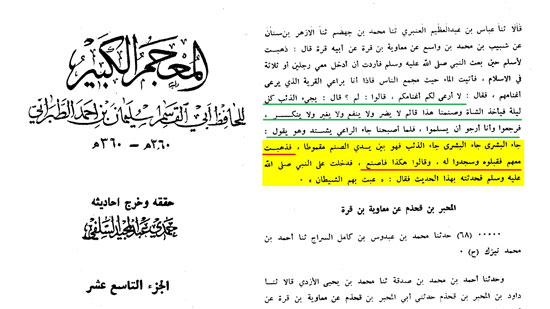 المعجم الكبير
للحافظ أبي القاسم سليمان بن احمد الطبراني
٢٦٠ه - ٣٦٠ه
حققه وخرج احاديثه
حمدي عبد المجيد السلفي
الجزء التاسع عشر
قالا ثنا عباس بن عبدالعظيم العنبري ثنا محمد بن جهضم ثنا الازهر بن سنان
عن شبيب بن محمد بن واسع عن معاوية بن قرة عن أبيه قرة قال : ذهبت
لأسلم حين بعث النبي صلى الله عليه وسلم فأردت أن ادخل معي رجلين أو ثلاثة
في الاسلام ، فأتيت الماء حيث مجمع الناس فاذا أنا براعي القرية الذي يرعى
أغنامهم ، فقال : لا أرعى لكم أغنامكم ، قالوا : لم ؟ قال : يجيء الذئب كل
ليلة فيأخذ الشاة وصنمنا هذا قائم لا يضر ولا ينفع ولا يغير ولا ينكر ،
فرجعوا وأنا أرجو أن يسلموا ، فلما أصبحنا جاء الراعي يشتد وهو يقول :
جاء البشرى جاء البشرى جاء الذئب فهو بين يدي الصنم مقموطا ، فذهبت
معهم فقبلوه وسجدوا له ، وقالوا هكذا فاصنع ، فدخلت على النبي صلى الله
عليه وسلم فحدثته بهذا الحديث فقال : « عبث بهم الشيطان » ٠
المحبر بن قحذم عن معاوية بن قرة
٠٠٠٠٠ (٦٨) حدثنا محمد بن عبدوس بن كامل السراج ثنا أحمد بن
محمد نيزك (ح) ٠
وحدثنا أحمد بن محمد بن صدقة ثنا محمد بن يحيى الازدي قالا ثنا
داود بن المحبر بن قحذم حدثني أبي المحبر بن قحذم عن معاوية بن قرة عن